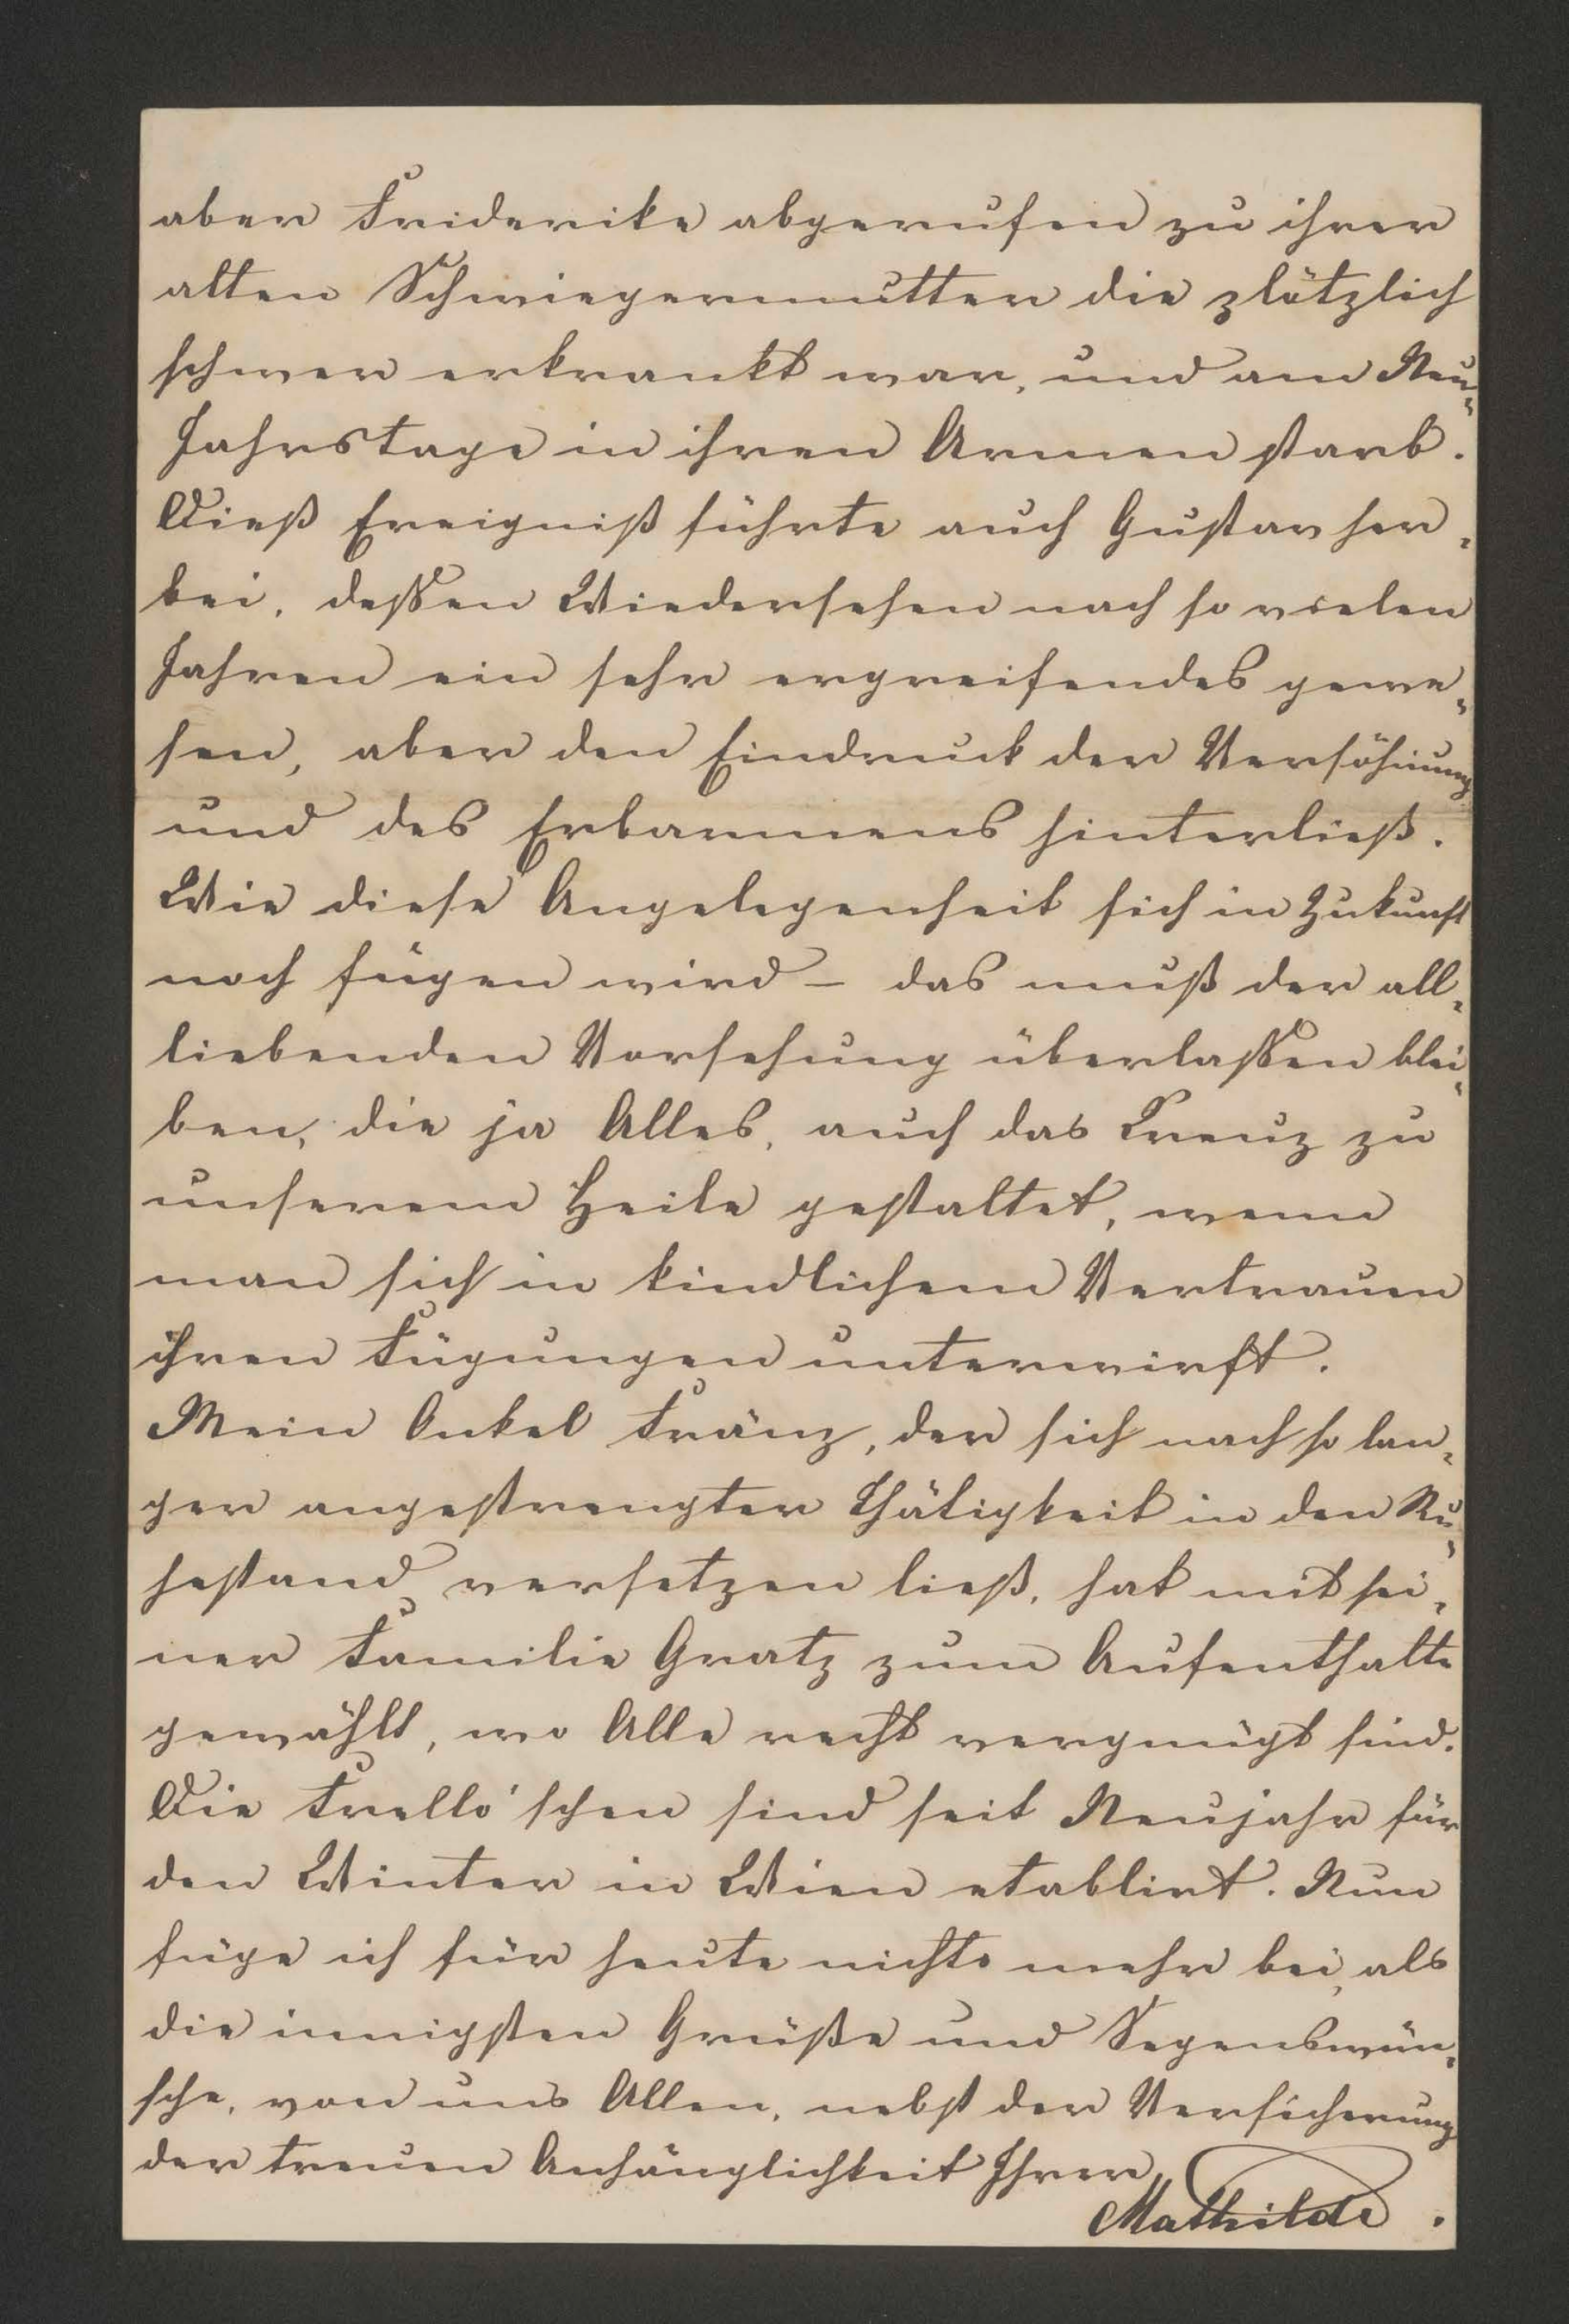 aber Friderike abgerufen zu ihrer
alten Schwiegermutter die plötzlich
schwer erkrankt war, und am Neu-
Jahrstage in ihren Armen starb.
Dieß Ereigniß führte auch Gustav her-
bei, dessen Wiedersehen nach so vielen
Jahren ein sehr ergreifendes gewe-
sen, aber den Eindruck der Versöhnung
und des Erbarmens hinterließ.
Wie diese Angelegenheit sich in Zukunft
noch fügen wird – das muß der all-
liebenden Vorsehung überlassen blei-
ben, die ja Alles, auch das Kreuz zu
unserem Heile gestaltet, wenn
man sich in kindlichem Vertrauen
ihren Fügungen unterwirft.
Mein Onkel Fränz, der sich nach so lan-
ger angestrengter Thätigkeit in den Ru-
hestand versetzen ließ, hat mit sei-
ner Familie Gratz zum Aufenthalte
gewählt, wo Alle recht vergnügt sind.
Die Frello'schen sind seit Neujahr für
den Winter in Wien etablirt. Nun
füge ich für heute nichts mehr bei, als
die innigsten Grüße und Segenswün-
sche, von uns Allen, nebst der Versicherung
der treuen Anhänglichkeit Ihrer
Mathilde.